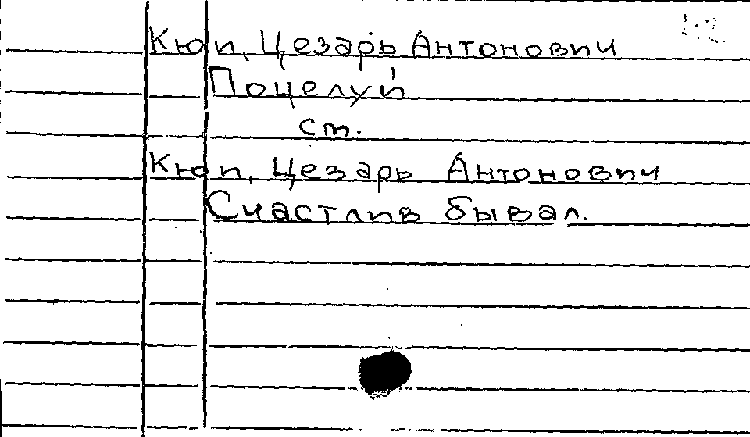 Кюи, Цезарь Антонович
Поцелуй
ст.
Кюи, Цезарь Антонович
Счастлив бывал.